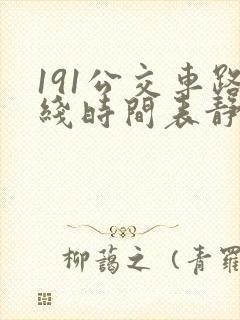 191公交車路
綫時間表靜
柳藹之（青羅